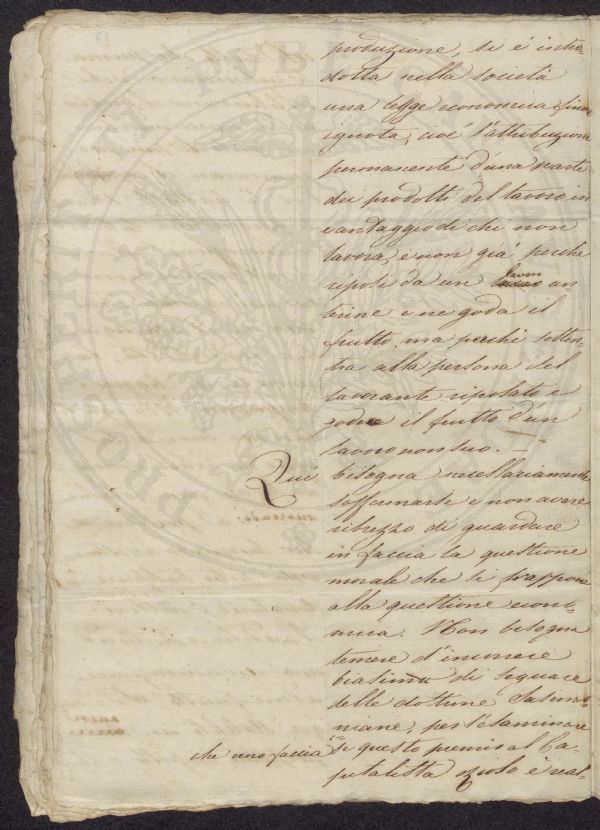 produzione, si è intro-
dotta nella società
una legge economica finora
ignota, cioè l'attribuzione
permanente d'una parte
dei prodotti del lavoro in
vantaggio di chi non
lavora, e non già perchè
riposi da un lavoro an-
teriore e ne goda il
frutto, ma perchè sotten-
tra alla persona del
lavorante riposato e
gode il frutto d'un
lavoro non suo. —
Qui bisogna necessariamente
soffermarsi e non avere
ribrezzo di guardare
in faccia la questione
morale che si frappone
alla questione econo-
mica. Non bisogna
temere d'incorrere
biasimo di seguace
delle dottrine Sansimo-
niane, per l'esaminare
che uno faccia se questo premio al Ca-
pitalista ozioso è real-